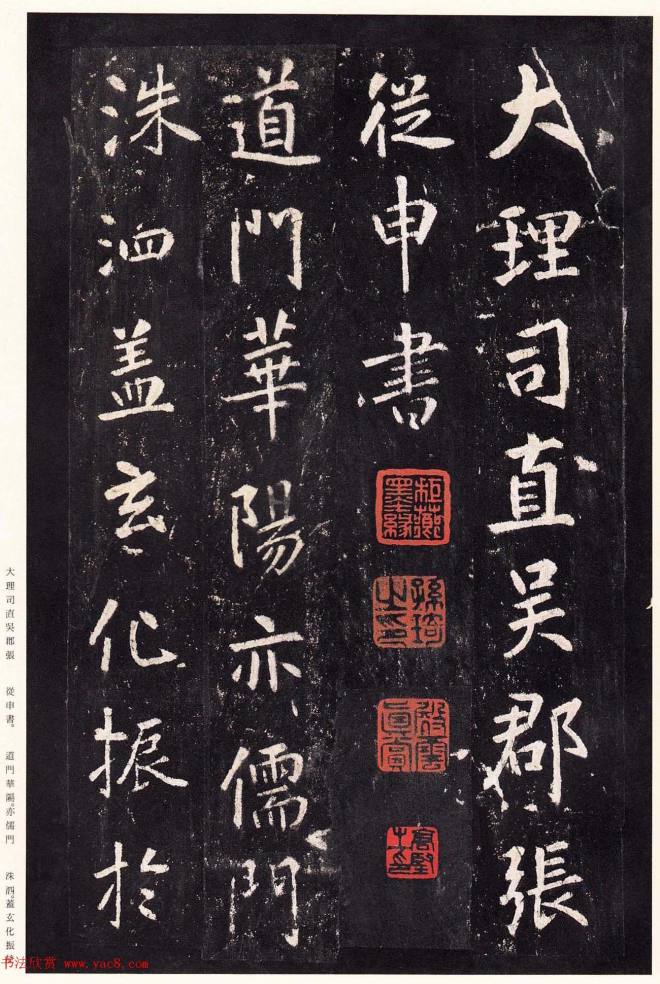 大理司直吳郡張
從申書
道門華陽亦儒門
洙泗盖玄化振於
大理司直吳郡張 從申書。 道門華陽。亦儒門 洙泗。蓋玄化振於
书法欣赏 www.yac8.com